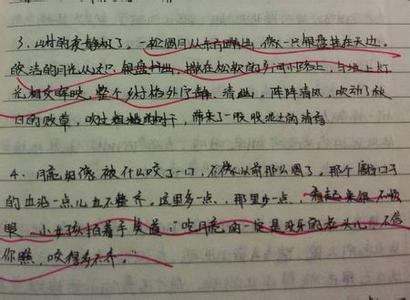 3、山村的夜静极了。一轮圆月从东方露出，像一只银盘挂在天边。
皎洁的月光从这只银盘拌出，撒在松软的乡间小路上，与地上灯
光相交晖映，整个乡村格外宁静、清幽。阵阵清风，吹动了秋
日的败草，吹过粗糙的树干，带来了一股股泥土的清香
4、月亮好像被什么咬了一口，不像以前那么圆了。那个断口子
的边沿一点儿也不整齐。这里多一点，那里少一点，看起来很不顺
眼。一小女孩拍着手笑道："咬月亮的一定是没牙的老头儿，不信
你瞧，咬得多不齐。"